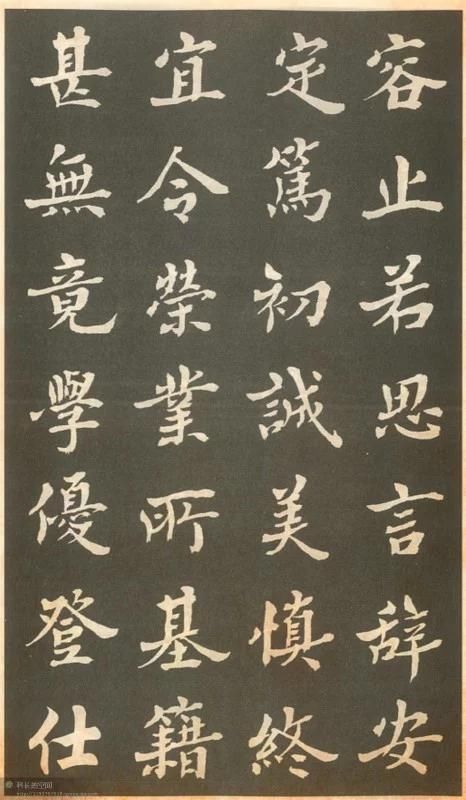 容止若思言辞安
定篤初誠美慎終
宜令榮業所基籍
甚無竟學優登仕
科长的空间